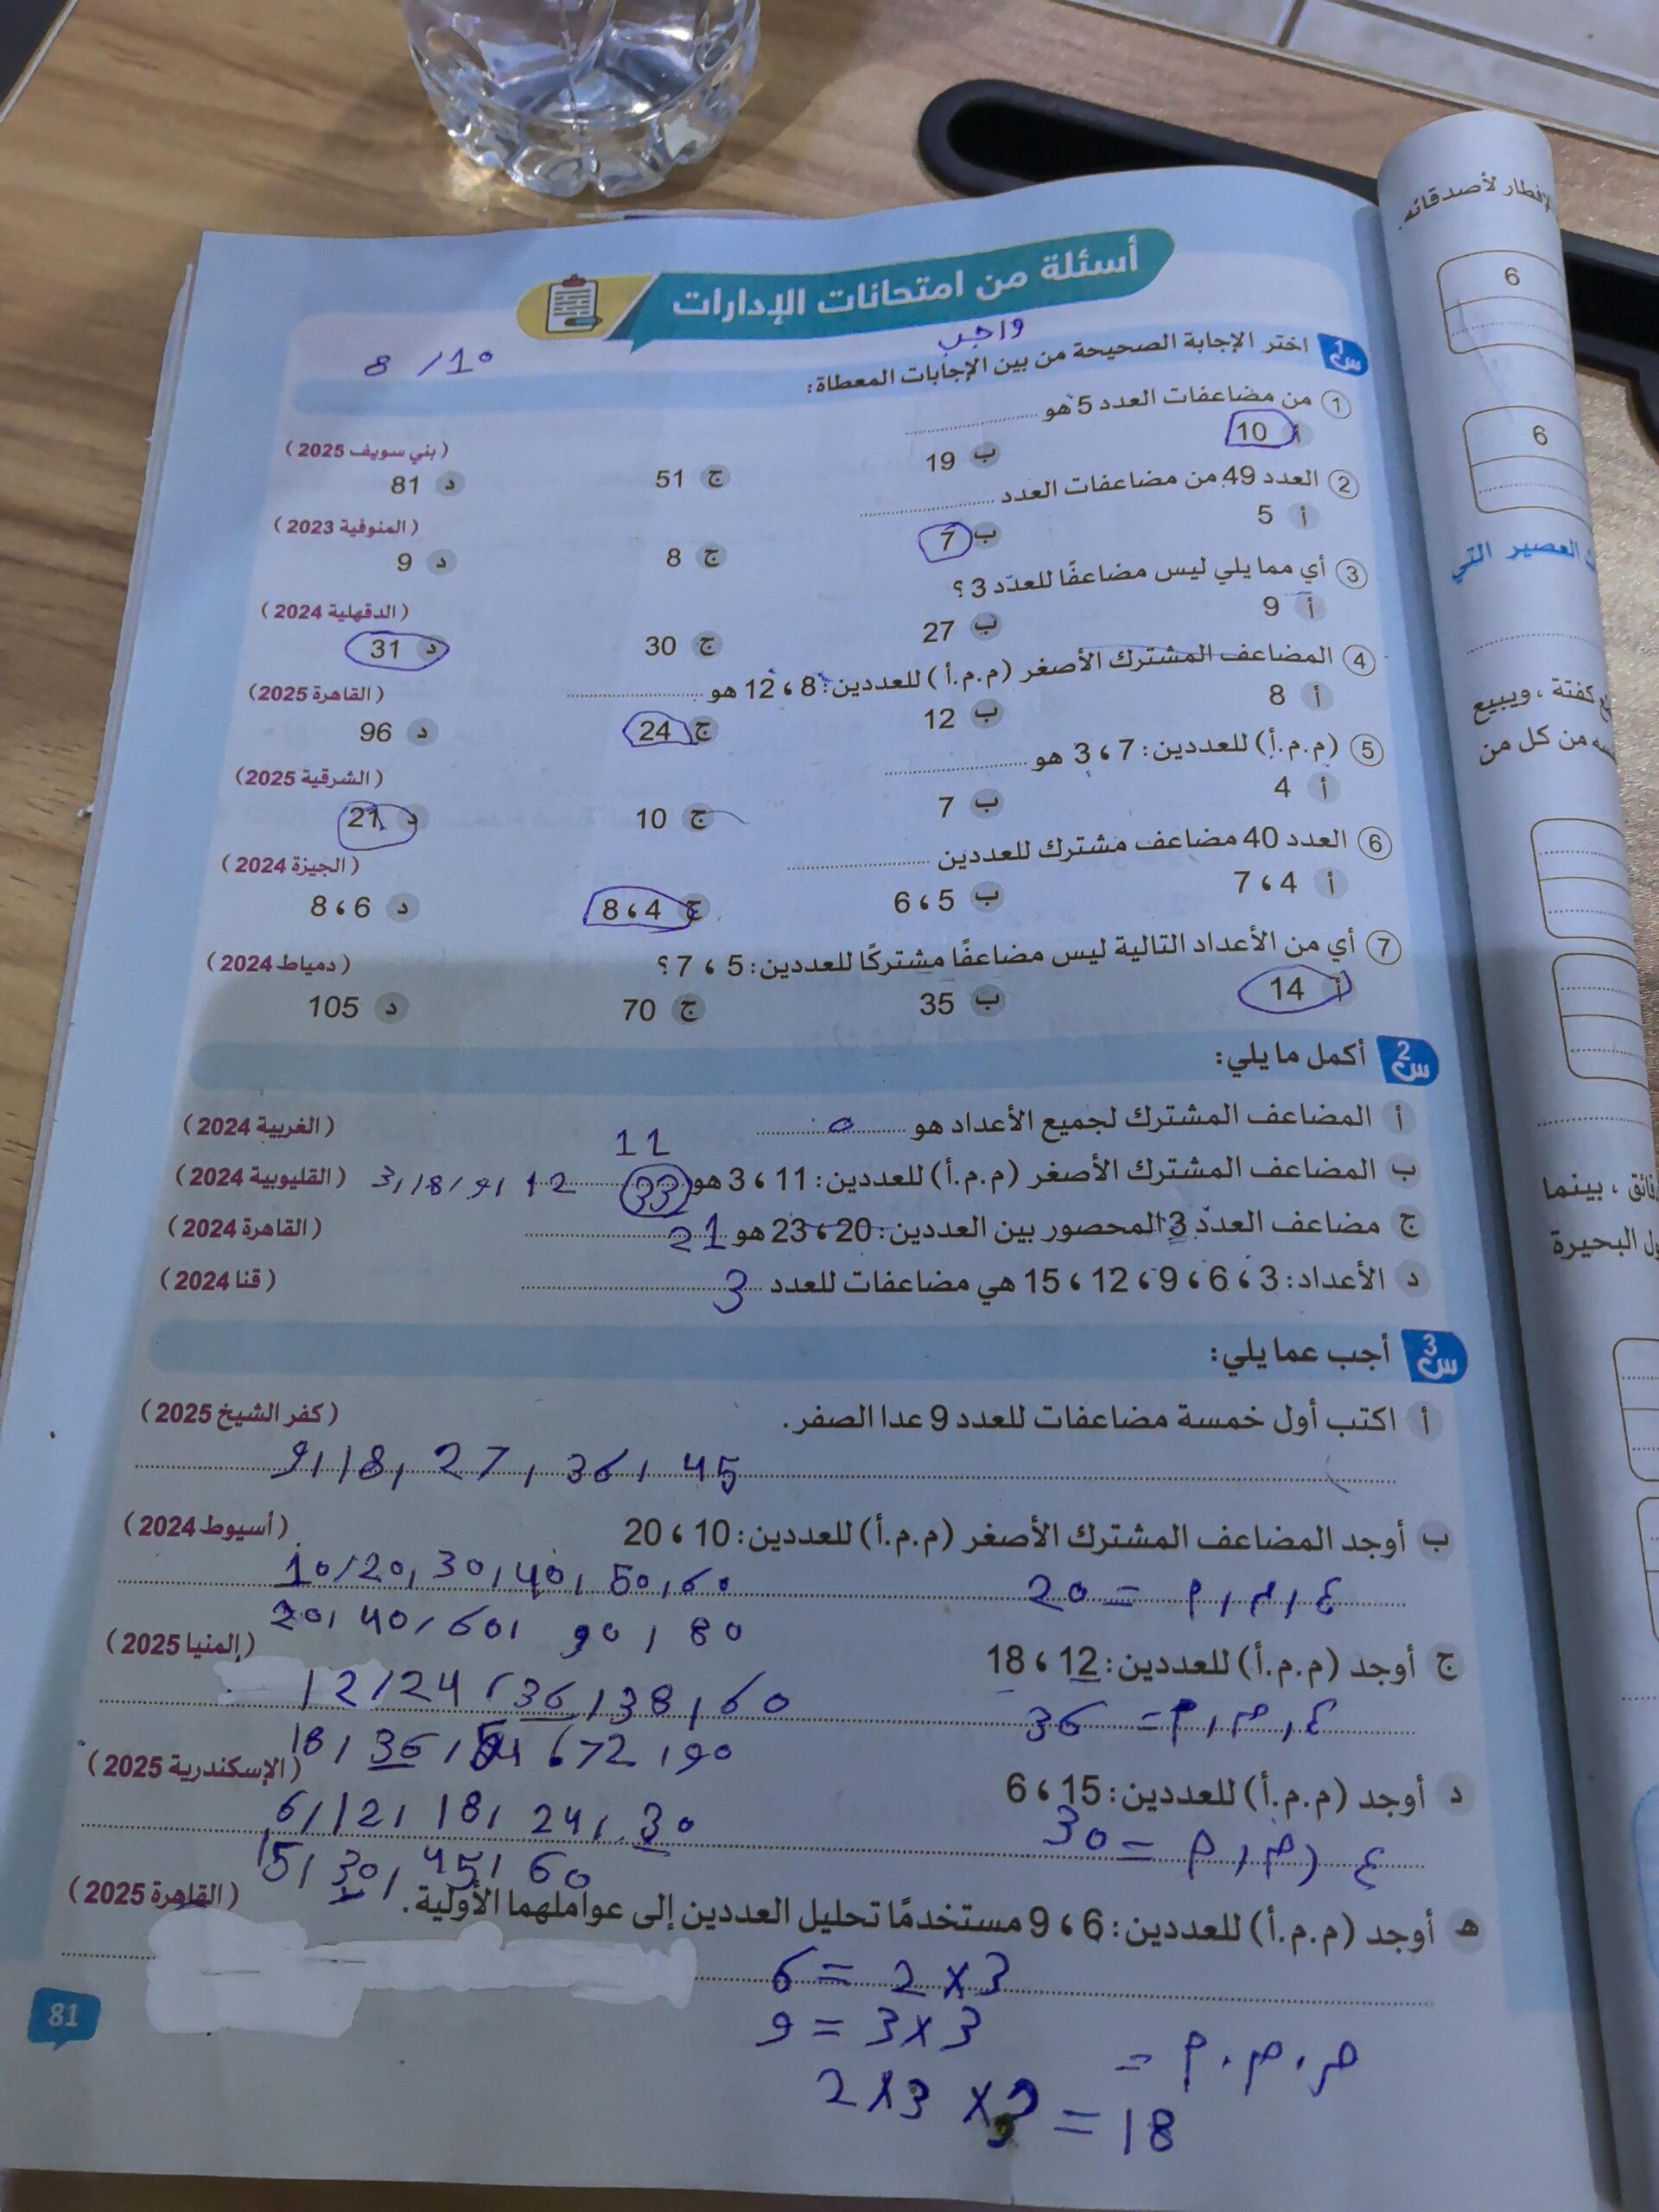 أسئلة من امتحانات الإدارات
واجب
8 / 10
س1 اختر الإجابة الصحيحة من بين الإجابات المعطاة:
1 من مضاعفات العدد 5 هو .......... (بني سويف 2025)
أ 10 ب 19 ج 51 د 81
2 العدد 49 من مضاعفات العدد .......... (المنوفية 2023)
أ 5 ب 7 ج 8 د 9
3 أي مما يلي ليس مضاعفًا للعدد 3 ؟ (الدقهلية 2024)
أ 9 ب 27 ج 30 د 31
4 المضاعف المشترك الأصغر (م.م.أ) للعددين: 8 ، 12 هو .......... (القاهرة 2025)
أ 8 ب 12 ج 24 د 96
5 (م.م.أ) للعددين: 7 ، 3 هو .......... (الشرقية 2025)
أ 4 ب 7 ج 10 د 21
6 العدد 40 مضاعف مشترك للعددين .......... (الجيزة 2024)
أ 4 ، 7 ب 5 ، 6 ج 4 ، 8 د 6 ، 8
7 أي من الأعداد التالية ليس مضاعفًا مشتركًا للعددين: 5 ، 7 ؟ (دمياط 2024)
أ 14 ب 35 ج 70 د 105
س2 أكمل ما يلي:
أ المضاعف المشترك لجميع الأعداد هو 0 (الغربية 2024)
11
ب المضاعف المشترك الأصغر (م.م.أ) للعددين: 11 ، 3 هو 33 (القليوبية 2024)
ج مضاعف العدد 3 المحصور بين العددين: 20 ، 23 هو 21 (القاهرة 2024)
د الأعداد: 3 ، 6 ، 9 ، 12 ، 15 هي مضاعفات للعدد 3 (قنا 2024)
س3 أجب عما يلي:
أ اكتب أول خمسة مضاعفات للعدد 9 عدا الصفر. (كفر الشيخ 2025)
9, 18, 27, 36, 45
ب أوجد المضاعف المشترك الأصغر (م.م.أ) للعددين: 10 ، 20 (أسيوط 2024)
10/20, 30, 40, 50, 60
20 =
20, 40, 60, 90, 80
ج أوجد (م.م.أ) للعددين: 12 ، 18 (المنيا 2025)
12/24, 36, 38, 60
36 =
18, 36, 54, 72, 90
د أوجد (م.م.أ) للعددين: 15 ، 6 (الإسكندرية 2025)
6, 12, 18, 24, 30
30 =
15, 30, 45, 60
هـ أوجد (م.م.أ) للعددين: 6 ، 9 مستخدمًا تحليل العددين إلى عواملهما الأولية. (القاهرة 2025)
6 = 2 x 3
9 = 3 x 3
م.م.م =
2 x 3 x 3 = 18
81
لإفطار لأصدقائه
6
6
العصير التي
كفتة ، ويبيع
من كل من
، بينما
ول البحيرة